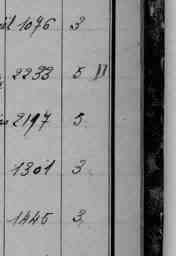 1096 3
2233 5 II
2197 5
1301 3
1445 3